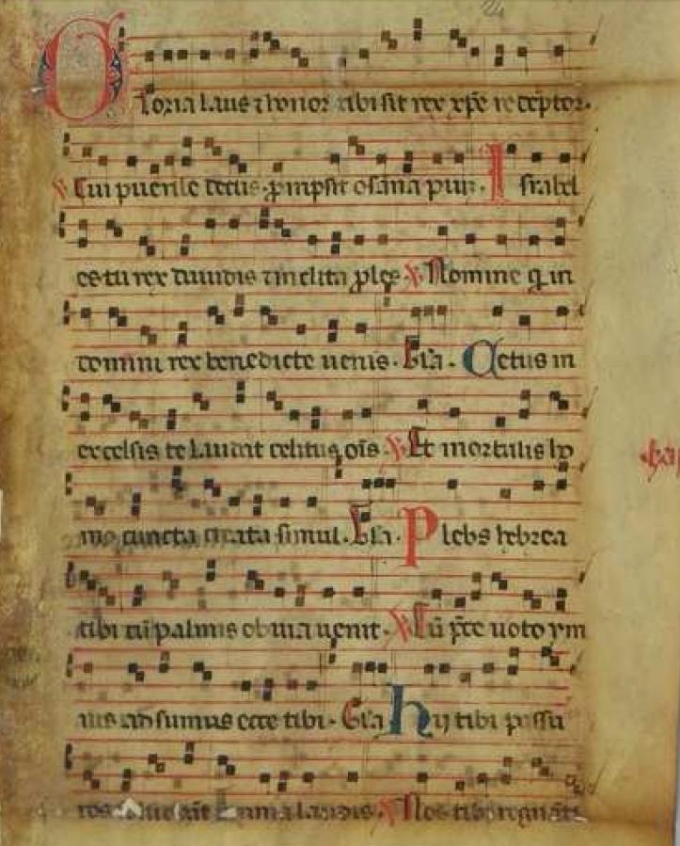 Gloria laus ⁊ honor tibi sit rex xp̄e redēptor.
℣ Cui puerile decus prompsit osāna piuȝ. Israhel
es tu rex dauidis ⁊ inclita ples ℣ Nomine q̄ in
domini rex benedicte uenis. Gl̄a. Cetus in
excelsis te laudat celitus oīs ℣ Et mortalis ho
mo cuncta creata simul. Gl̄a. Plebs hebrea
tibi cū palmis obuia uenit. ℣ Cū p̄ce uoto ym
nis adsumus ecce tibi. Gl̄a hij tibi passu
ros laudis. ℣ Nos tibi